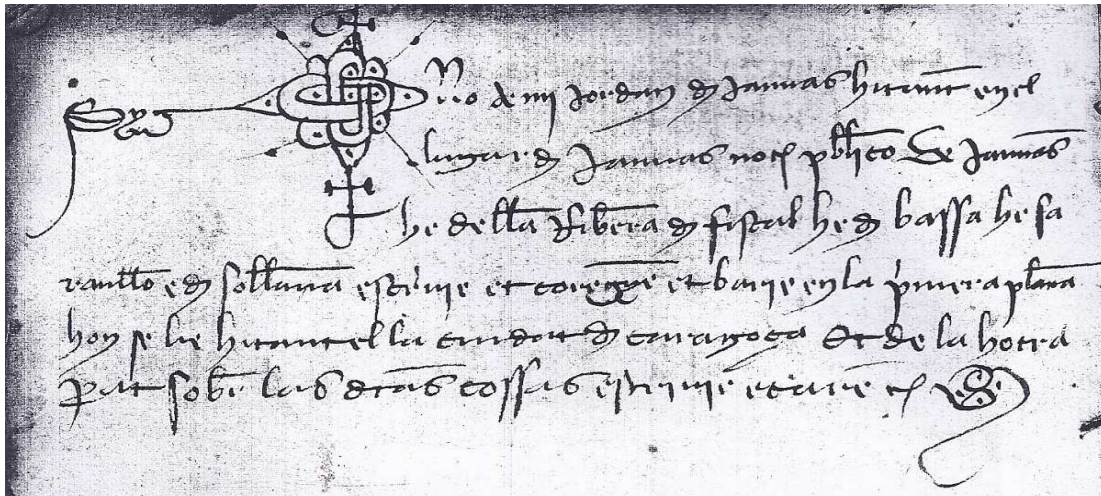 Syg no de mi Jordan de Janvas hitant en el
lugar de Janvas not publico de Janvas
he de lla Ribera de fiscal he de bassa he sa
rau llo e de sollana escrivie et corregie et barie en la primera plana
hon se lie hitant el la ciudat de caragoça Et de la hotra
part sobre las ditas cossas escrivie etc